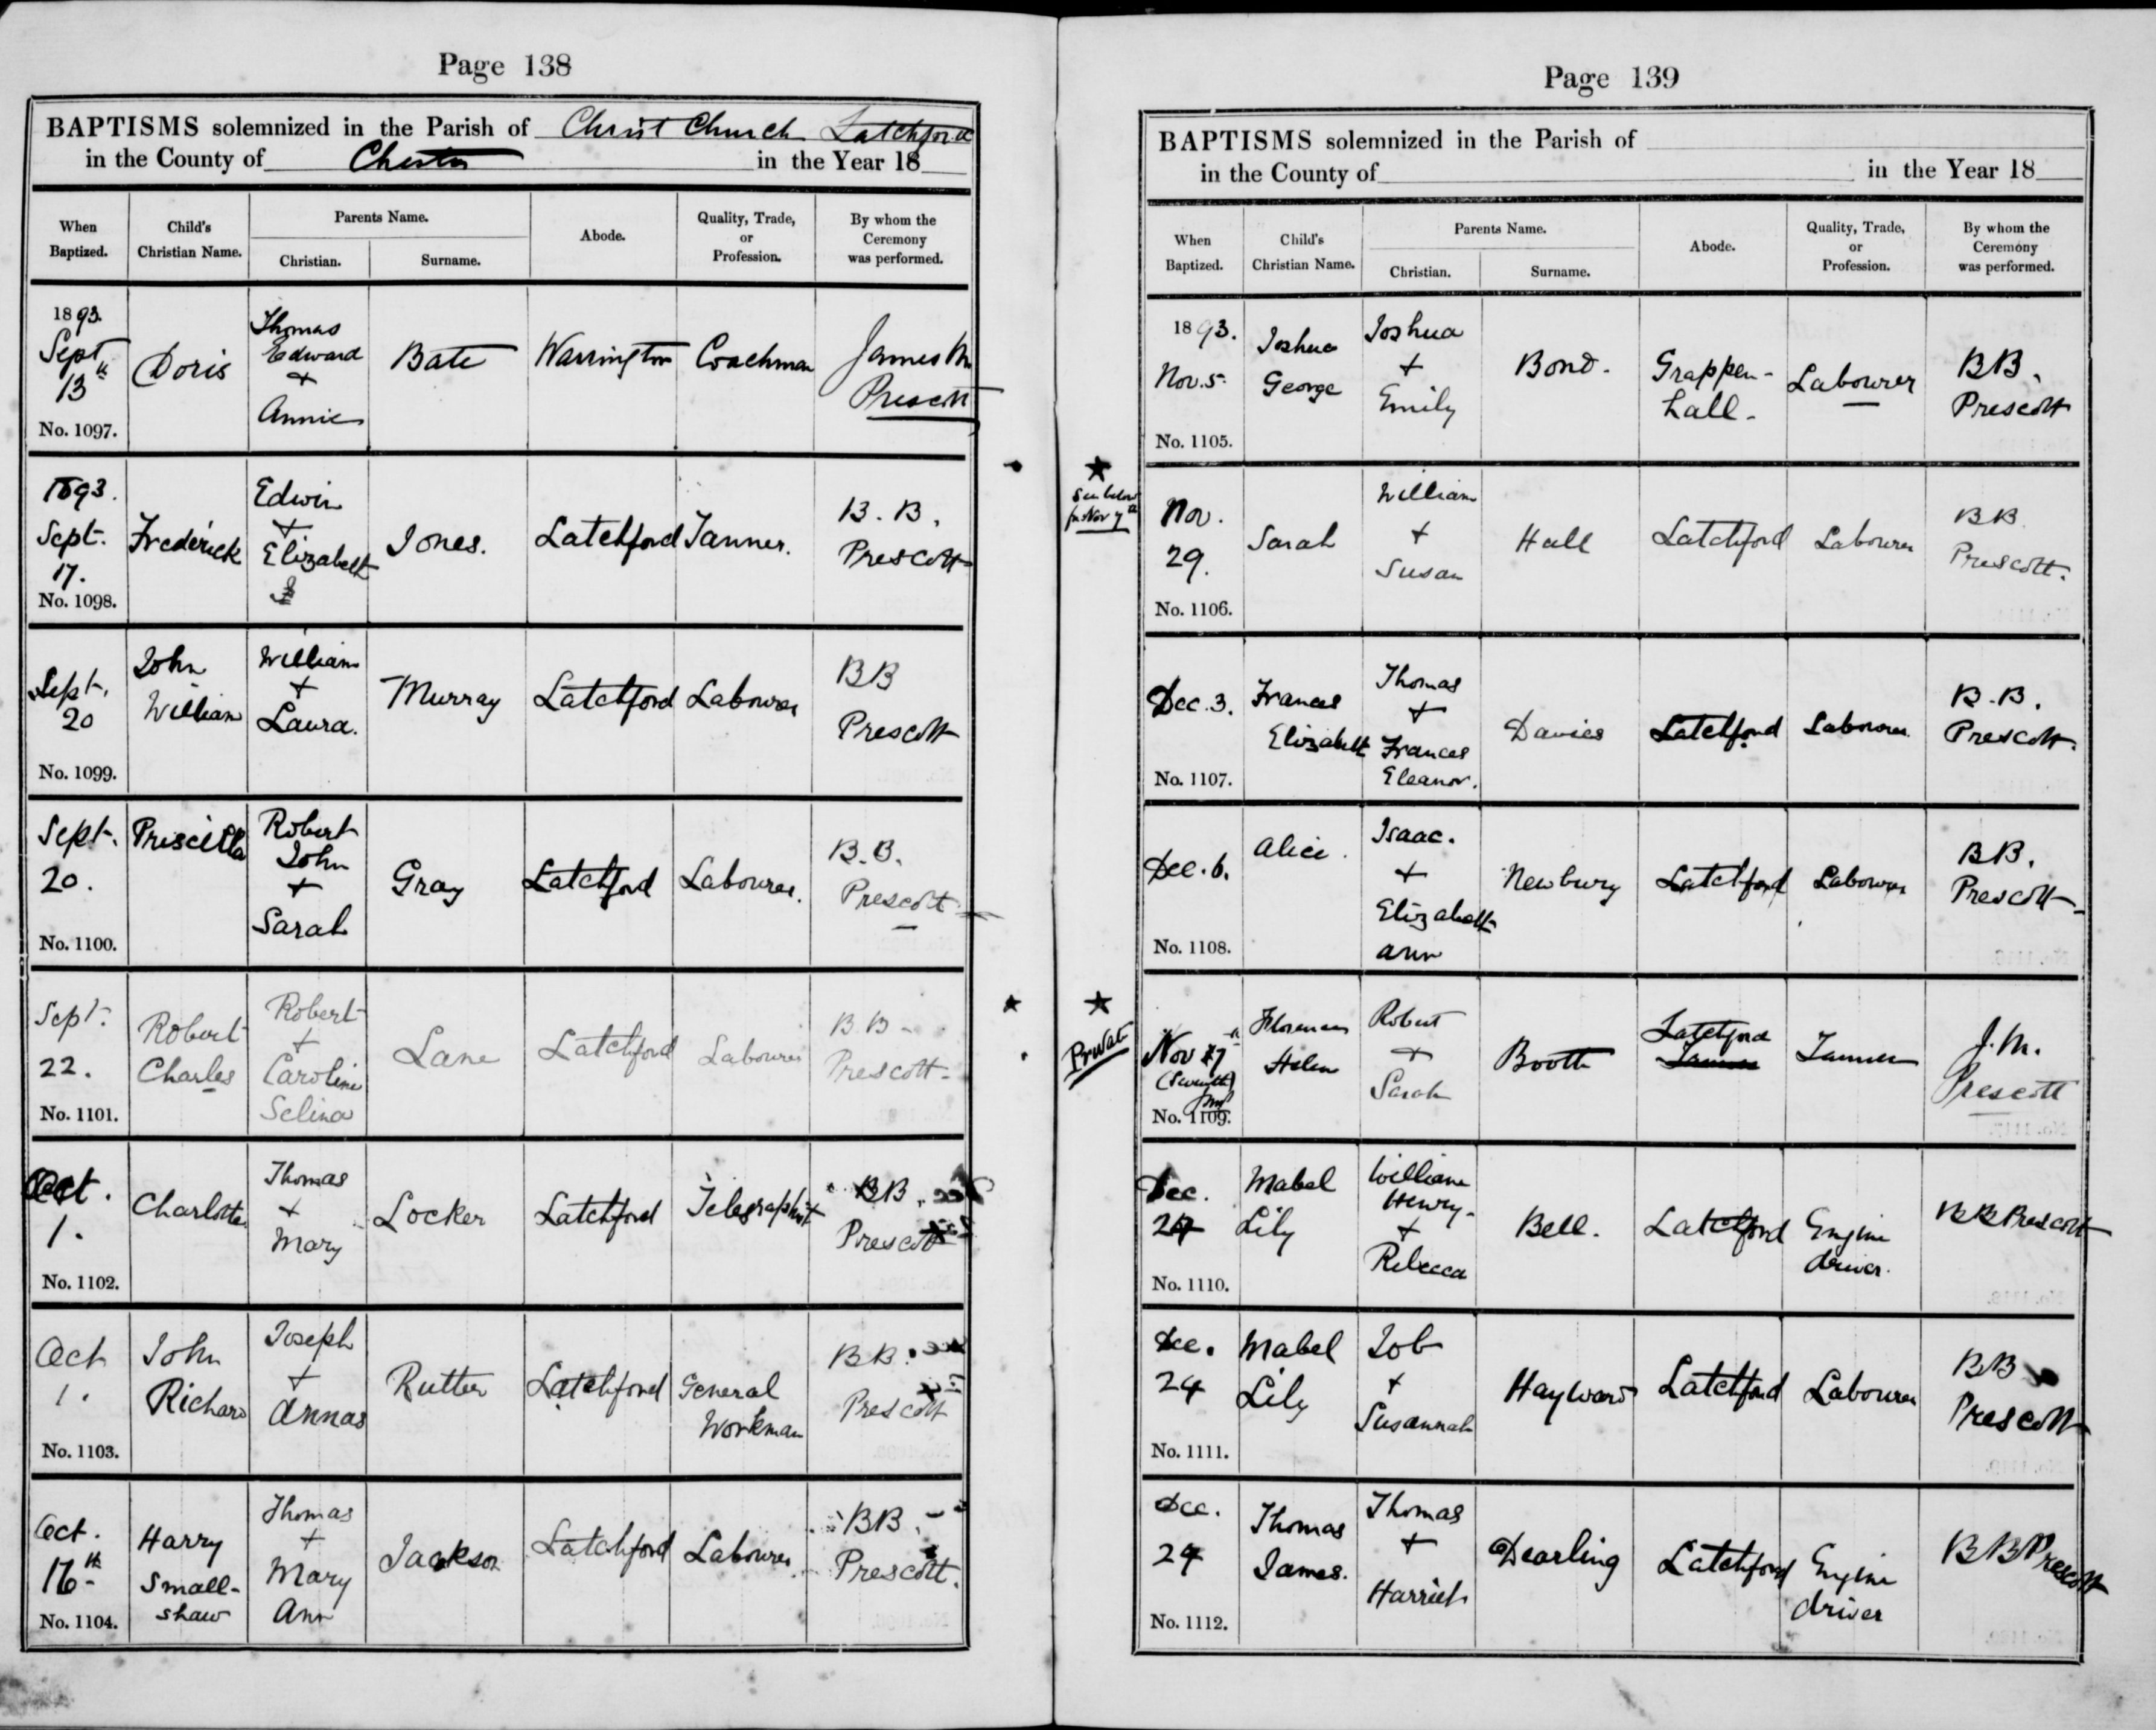 Page 138
BAPTISMS solemnized in the Parish of Christ Church Latchford
in the County of Chester in the Year 18
When Baptized. Child's Christian Name. Parents Name. Christian. Surname. Abode. Quality, Trade, or Profession. By whom the Ceremony was performed.
1893. Sept 13th No. 1097. Doris Thomas Edward + Annie Bate Warrington Coachman James M Prescott
1893. Sept. 17. No. 1098. Frederick Edwin + Elizabeth Jones. Latchford Tanner. B. B. Prescott
Sept. 20 No. 1099. John William William + Laura. Murray Latchford Labourer BB Prescott
Sept. 20. No. 1100. Priscilla Robert John + Sarah Gray Latchford Labourer. B.B. Prescott
Sept. 22. No. 1101. Robert Charles Robert + Caroline Selina Lane Latchford Labourer BB Prescott
Oct. 1. No. 1102. Charlotte Thomas + Mary Locker Latchford Telegraphist BB. Prescott
Oct 1. No. 1103. John Richard Joseph + Annas Rutter Latchford General Workman BB. Prescott
Oct. 16th No. 1104. Harry Small-shaw Thomas + Mary Ann Jackson Latchford Labourer BB. Prescott.
Page 139
BAPTISMS solemnized in the Parish of
in the County of in the Year 18
When Baptized. Child's Christian Name. Parents Name. Christian. Surname. Abode. Quality, Trade, or Profession. By whom the Ceremony was performed.
1893. Nov. 5. No. 1105. Joshua George Joshua + Emily Bond. Grappen-hall. Labourer BB. Prescott
See below for Nov 7th
Nov. 29. No. 1106. Sarah William + Susan Hall Latchford Labourer BB Prescott.
Dec. 3. No. 1107. Frances Elizabeth Thomas + Frances Eleanor. Davies Latchford Labourer B.B. Prescott.
Dec. 6. No. 1108. Alice. Isaac. + Elizabeth Ann Newbury Latchford Labourer BB. Prescott
Private
Nov 7th (Seventh) No. 1109. Florence Helen Robert + Sarah Booth Latchford Tanner Tanner J.M. Prescott
Dec. 24 No. 1110. Mabel Lily William Henry + Rebecca Bell. Latchford Engine driver. BB Prescott
Dec. 24 No. 1111. Mabel Lily Job + Susannah Hayward Latchford Labourer BB Prescott
Dec. 24 No. 1112. Thomas James. Thomas + Harriet Dearling Latchford Engine driver BB Prescott